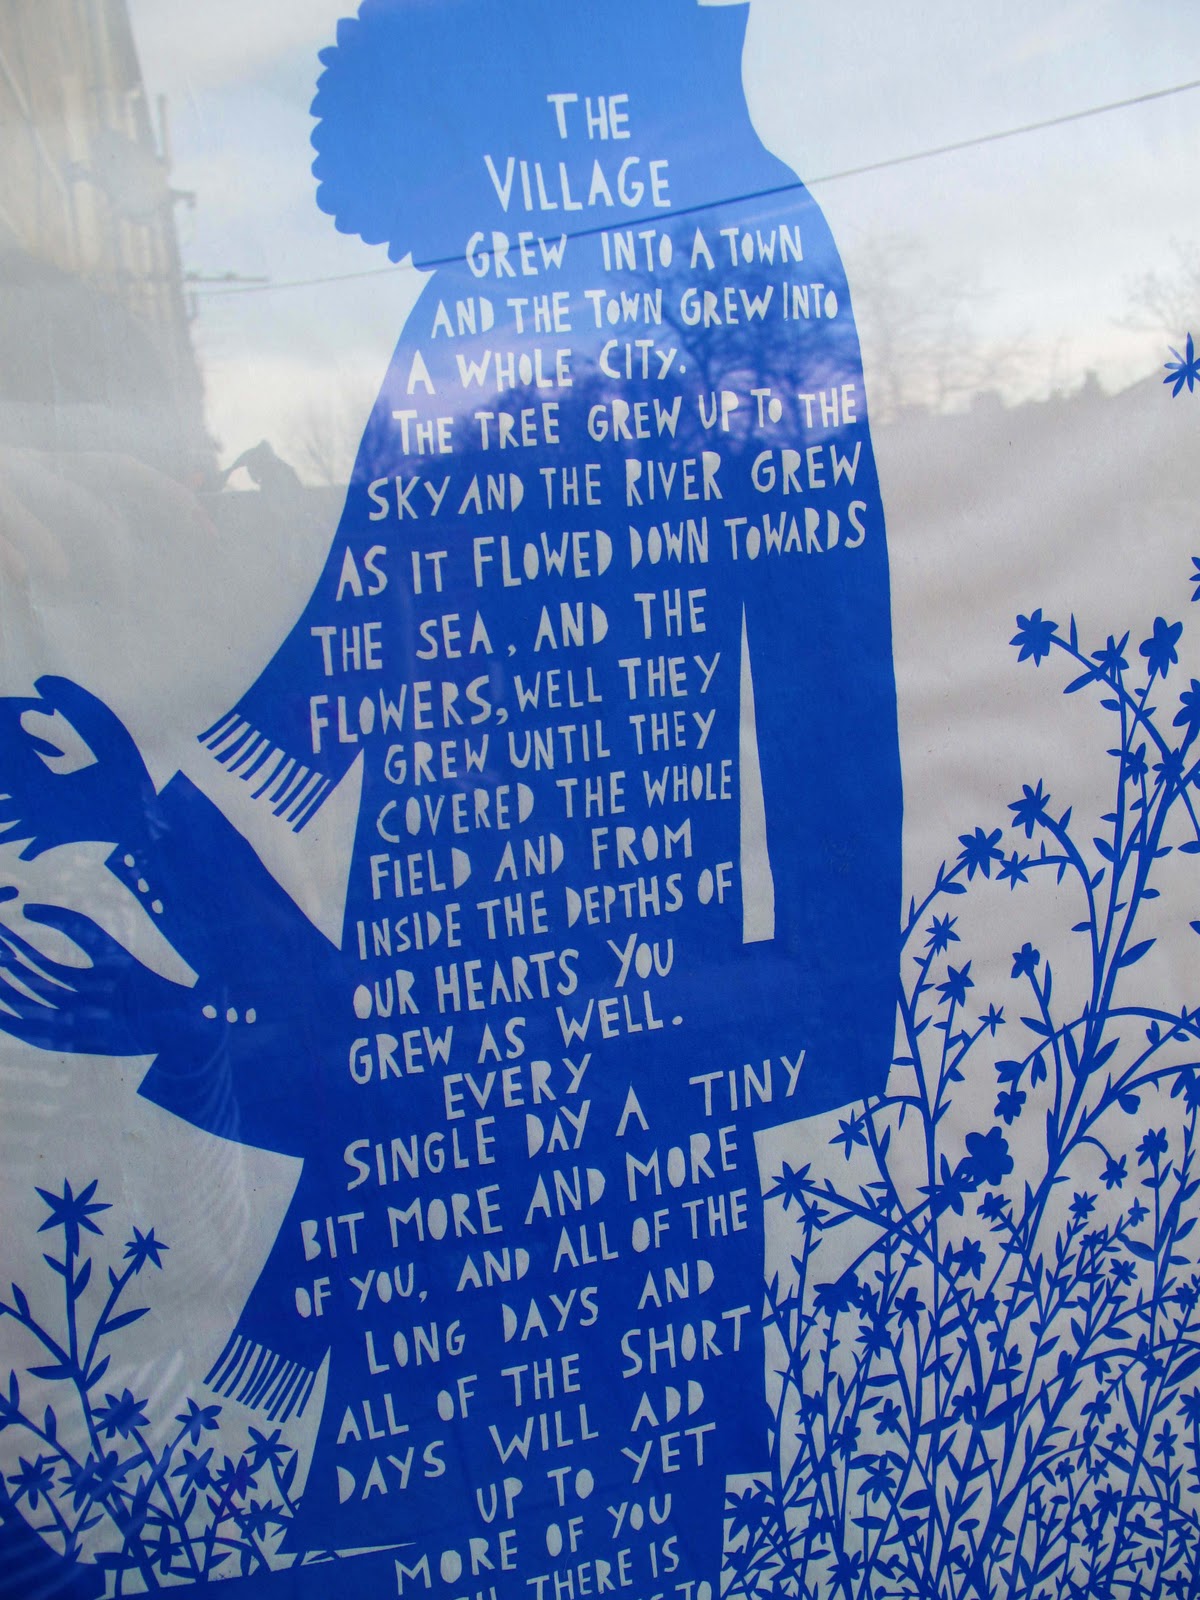 THE
VILLAGE
GREW INTO A TOWN
AND THE TOWN GREW INTO
A WHOLE CITY.
THE TREE GREW UP TO THE
SKY AND THE RIVER GREW
AS IT FLOWED DOWN TOWARDS
THE SEA, AND THE
FLOWERS, WELL THEY
GREW UNTIL THEY
COVERED THE WHOLE
FIELD AND FROM
INSIDE THE DEPTHS OF
OUR HEARTS YOU
GREW AS WELL.
EVERY
SINGLE DAY A TINY
BIT MORE AND MORE
OF YOU, AND ALL OF THE
LONG DAYS AND
ALL OF THE SHORT
DAYS WILL ADD
UP TO YET
MORE OF YOU
THERE IS
TO